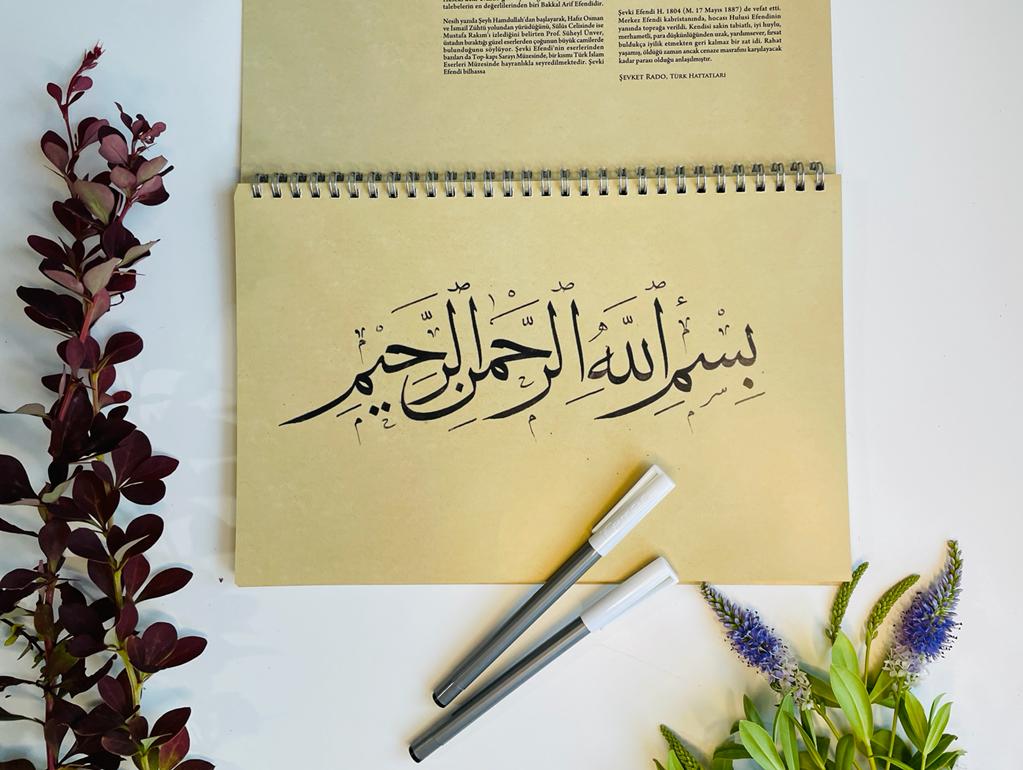 talebelerin en değerlilerinden biri Bakkal Arif Efendidir.
Nesih yazıda Şeyh Hamdullah'dan başlayarak, Hafız Osman
ve İsmail Zühtü yolundan yürüdüğünü, Sülüs Celisinde ise
Mustafa Rakım'ı izlediğini belirten Prof. Süheyl Ünver,
üstadın bıraktığı güzel eserlerden çoğunun büyük camilerde
bulunduğunu söylüyor. Şevki Efendi'nin eserlerinden
bazıları da Top-kapı Sarayı Müzesinde, bir kısmı Türk İslam
Eserleri Müzesinde hayranlıkla seyredilmektedir. Şevki
Efendi bilhassa
Şevki Efendi H. 1804 (M. 17 Mayıs 1887) de vefat etti.
Merkez Efendi kabristanında, hocası Hulusi Efendinin
yanında toprağa verildi. Kendisi sakin tabiatlı, iyi huylu,
merhametli, para düşkünlüğünden uzak, yardımsever, fırsat
buldukça iyilik etmekten geri kalmaz bir zat idi. Rahat
yaşamış, öldüğü zaman ancak cenaze masrafını karşılayacak
kadar parası olduğu anlaşılmıştır.
Şevket Rado, Türk Hattatları
بسم الله الرحمن الرحيم